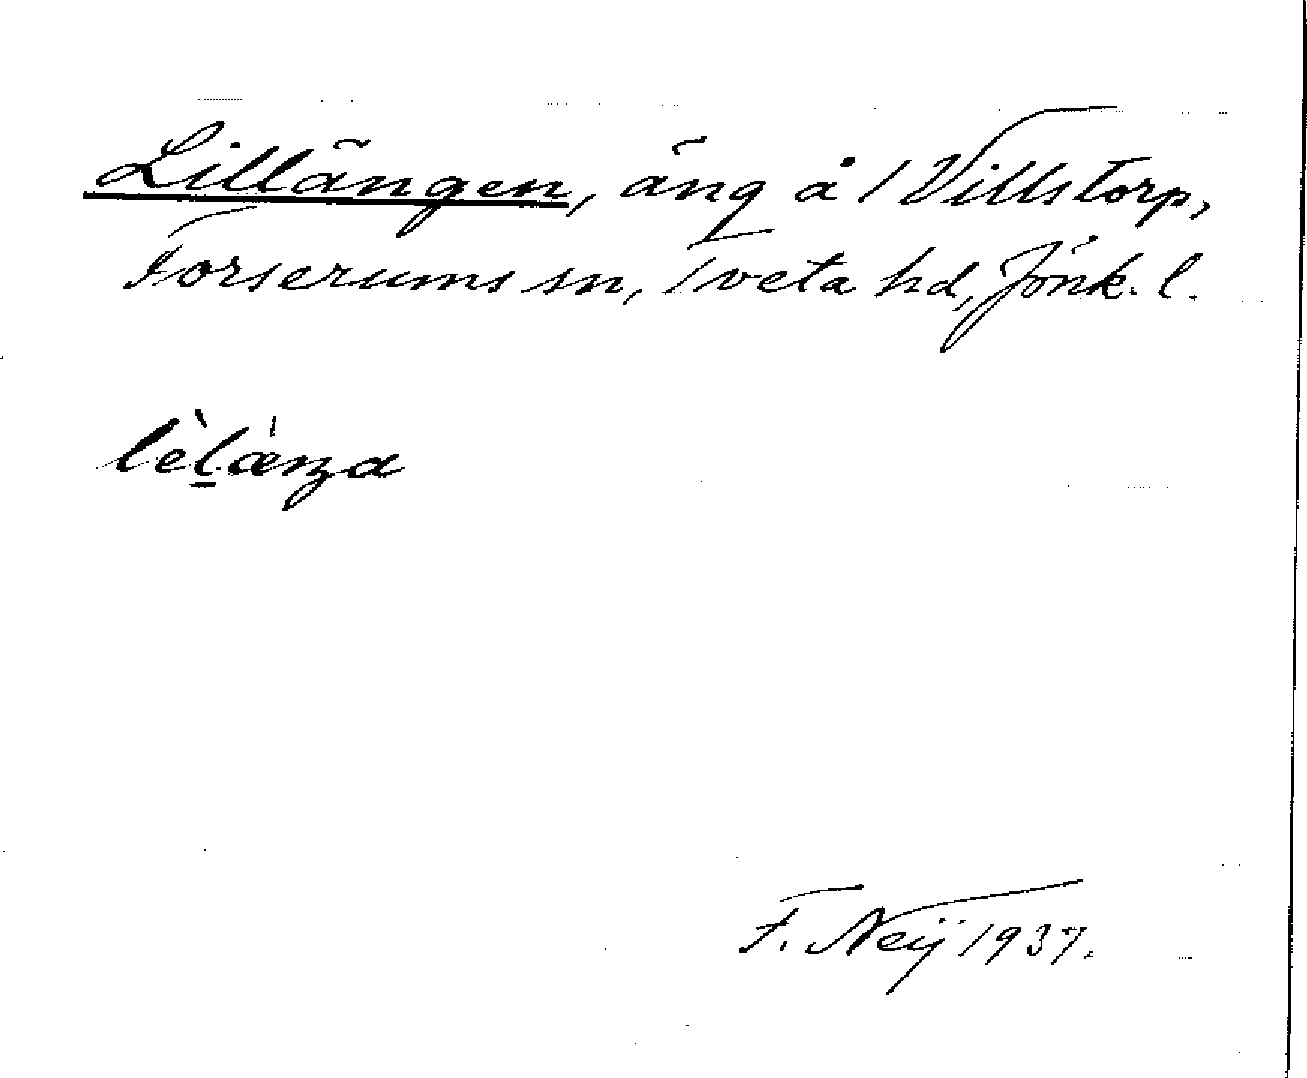 Lillängen, äng å 1 Villstorp,
Forserums sn, Tveta hd, Jönk. l.
lèl̠ǽŋa
F. Neij 1937.